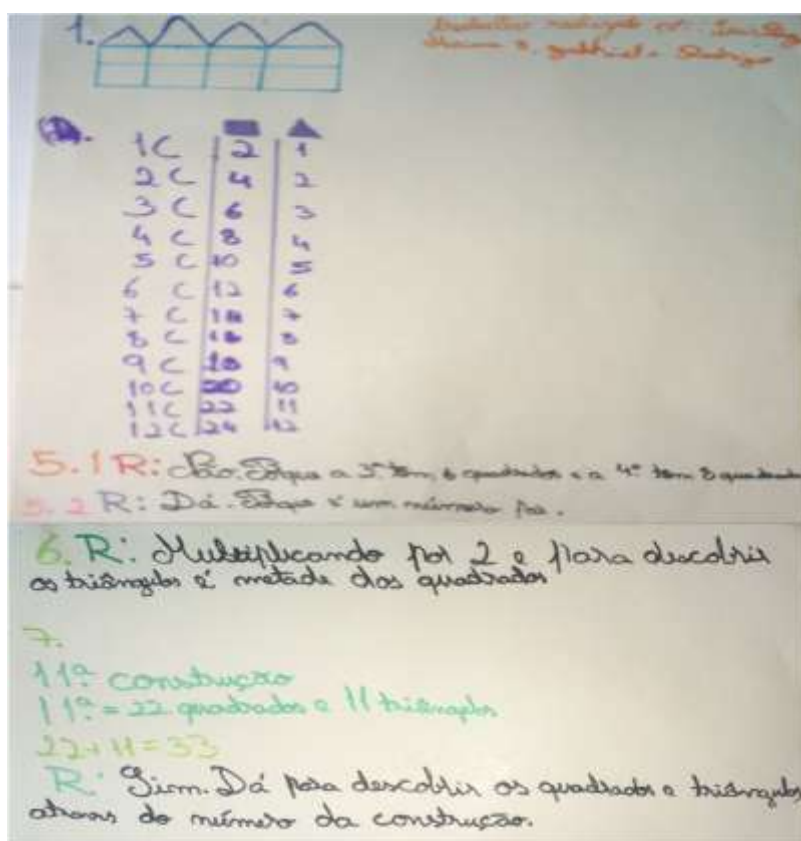 1.
1C 2 1
2C 4 2
3C 6 3
4C 8 4
5C 10 5
6C 12 6
7C 7
8C 8
9C 9
10C 20 10
11C 22 11
12C 24 12
5.1 R: Não. Porque a 3ª tem 6 quadrados e a 4ª tem 8 quadrados
5.2 R: Dá. Porque é um número par.
6. R: Multiplicando por 2 e para descobrir
os triângulos é metade dos quadrados
7.
11ª construção
11ª = 22 quadrados e 11 triângulos
22+11=33
R: Sim. Dá para descobrir os quadrados e triângulos
do número da construção.